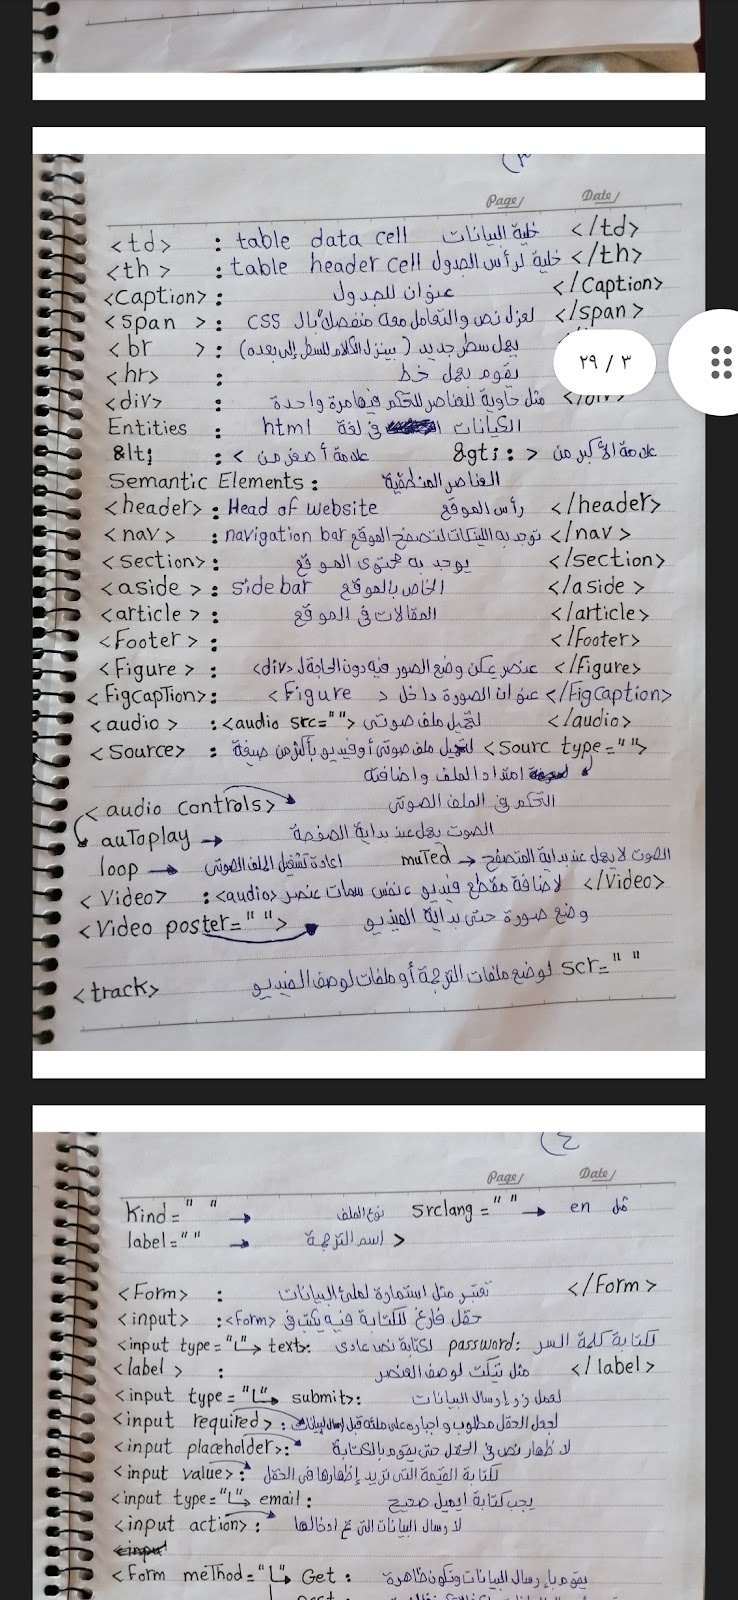 (٣
Page/ Date/
<td> : table data cell خلية البيانات </td>
<th> : table header cell خلية لرأس الجدول </th>
<Caption> : عنوان للجدول </Caption>
<span > : لعزل نص والتعامل معه منفصلاً بال CSS </span>
<br > : يعمل سطر جديد (بينزل الكلام للسطر إلى بعده)
<hr> : يقوم بعمل خط
٢٩ / ٣
<div> : مثل حاوية للعناصر للتحكم فيها مرة واحدة </div>
Entities : الكيانات في لغة html
&lt; : علامة أصغر من < &gt; : علامة الأكبر من >
Semantic Elements : العناصر المنطقية
<header> : Head of website رأس الموقع </header>
<nav> : navigation bar توجد به اللينكات لتصفح الموقع </nav>
<section> : يوجد به محتوى الموقع </section>
<aside > : side bar الخاص بالموقع </aside >
<article > : المقالات في الموقع </article>
<Footer > : </footer>
<Figure > : عنصر يمكن وضع الصور فيه دون الحاجة ل <div> </figure>
<FigcapTion> : عنوان الصورة داخل <Figure > </FigCaption>
<audio > : <audio src=" "> لتحميل ملف صوتى </audio>
<Source> : لتحميل ملف صوتى أو فيديو بأكثر من صيغة <Sourc type=" ">
امتداد الملف واضافته
<audio controls> التحكم في الملف الصوتى
auToplay → الصوت يعمل عند بداية الصفحة
loop → اعادة تشغيل الملف الصوتى muTed → الصوت لا يعمل عند بداية المتصفح
<Video> : لاضافة مقطع فيديو نفس سمات عنصر <audio> </Video>
<Video poster=" "> وضع صورة حتى بداية الفيديو
<track> لوضع ملفات الترجمة أو ملفات لوصف الفيديو scr=" "
(٤
Page/ Date/
Kind=" " → نوع الملف Srclang=" " → en مثل
label=" " → اسم الترجمة >
<Form> : تعتبر مثل استمارة لملئ البيانات </Form>
<input> : حقل فارغ للكتابة فيه يكتب في <form>
<input type="↳ text: لكتابة نص عادى password: لكتابة كلمة السر
<label > : مثل تيكت لوصف العنصر </label>
<input type="↳ submit>: لعمل زر إرسال البيانات
<input required> : لجعل الحقل مطلوب و اجباره على ملئه قبل ارسال البيانات
<input placeholder>: لاظهار نص في الحقل حتى يقوم بالكتابة
<input value> : لكتابة القيمة التى نريد إظهارها في الحقل
<input type="↳ email : يجب كتابة ايميل صحيح
<input action> : لارسال البيانات التى تم ادخالها
<input
<Form meThod="↳ Get : يقوم بإرسال البيانات وتكون ظاهرة